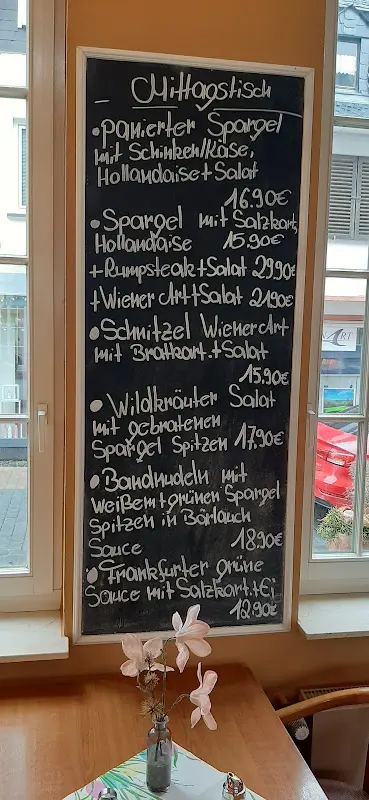 Mittagstisch
• panierter Spargel
mit Schinken/Käse,
Hollandaise + Salat
16.90€
• Spargel mit Salzkart,
Hollandaise 15.90€
+ Rumpsteak + Salat 29.90€
+ Wiener Art + Salat 21.90€
• Schnitzel Wiener Art
mit Bratkart. + Salat
15.90€
• Wildkräuter Salat
mit gebratenen
Spargel Spitzen 17.90€
• Bandnudeln mit
weißem + grünen Spargel
Spitzen in Bärlauch
Sauce 18.90€
• Frankfurter grüne
Sauce mit Salzkart. + Ei
12.90€